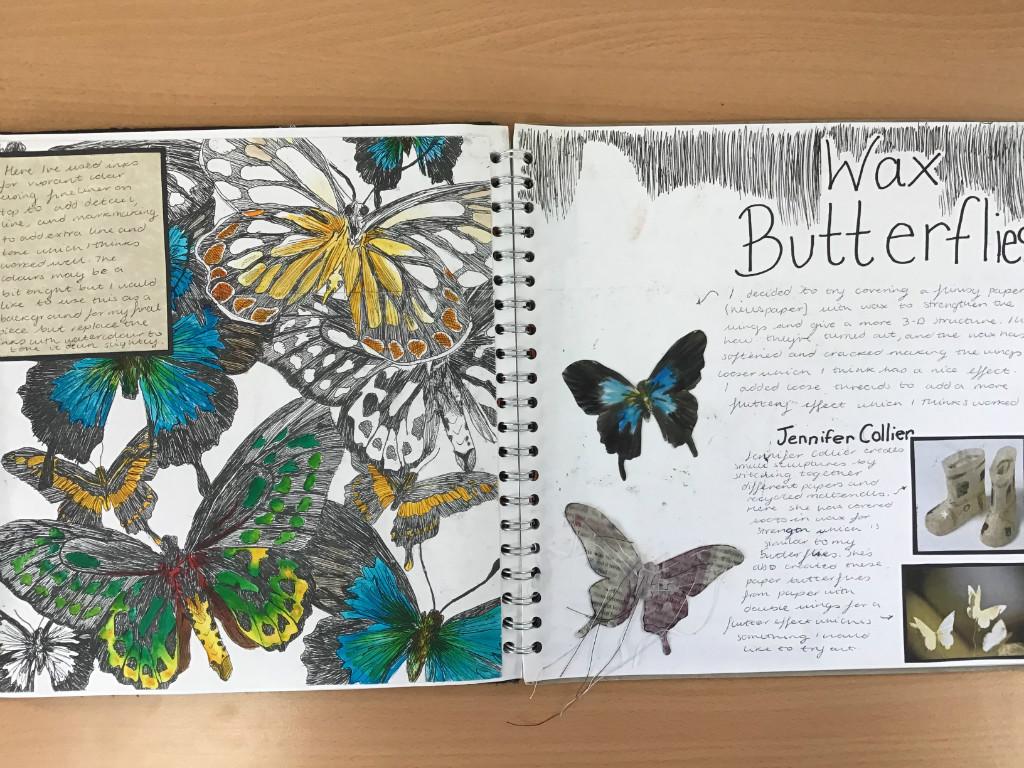 Here I've used inks
for vibrant colour
using fineliner on
top to add detail,
line, and markmaking
to add extra line and
tone which I think
worked well. The
colours may be a
bit bright but I would
like to use this as a
background for my final
piece but replace the
inks with watercolour to
tone it down slightly
Wax
Butterflies
I decided to try covering a flimsy paper
(newspaper) with wax to strengthen the
wings and give a more 3-D structure.
how they're turned out, and the wax has
softened and cracked making the wings
looser which I think has a nice effect.
I added loose threads to add a more
"fluttery" effect which I think worked
Jennifer Collier
Jennifer Collier creates
small sculptures by
stitching together
different papers and
recycled materials.
Here she has covered
boots in wax for
strength which is
similar to my
butterflies. She's
also created these
paper butterflies
from paper with
double wings for a
flutter effect which is
something I would
like to try out.